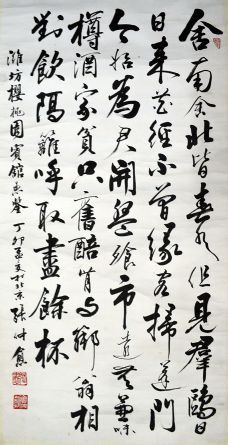 舍南舍北皆春水但見羣鷗日
日來花徑不曾緣客掃蓬門
今始為君開盤飧市遠無兼味
樽酒家貧只舊醅肯與鄰翁相
對飲隔籬呼取盡餘杯
濰坊櫻桃園賓館 丁卯孟夏於北京 張